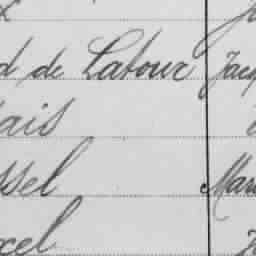 d de Latour Jacq
ais
ssel Mar
xcel